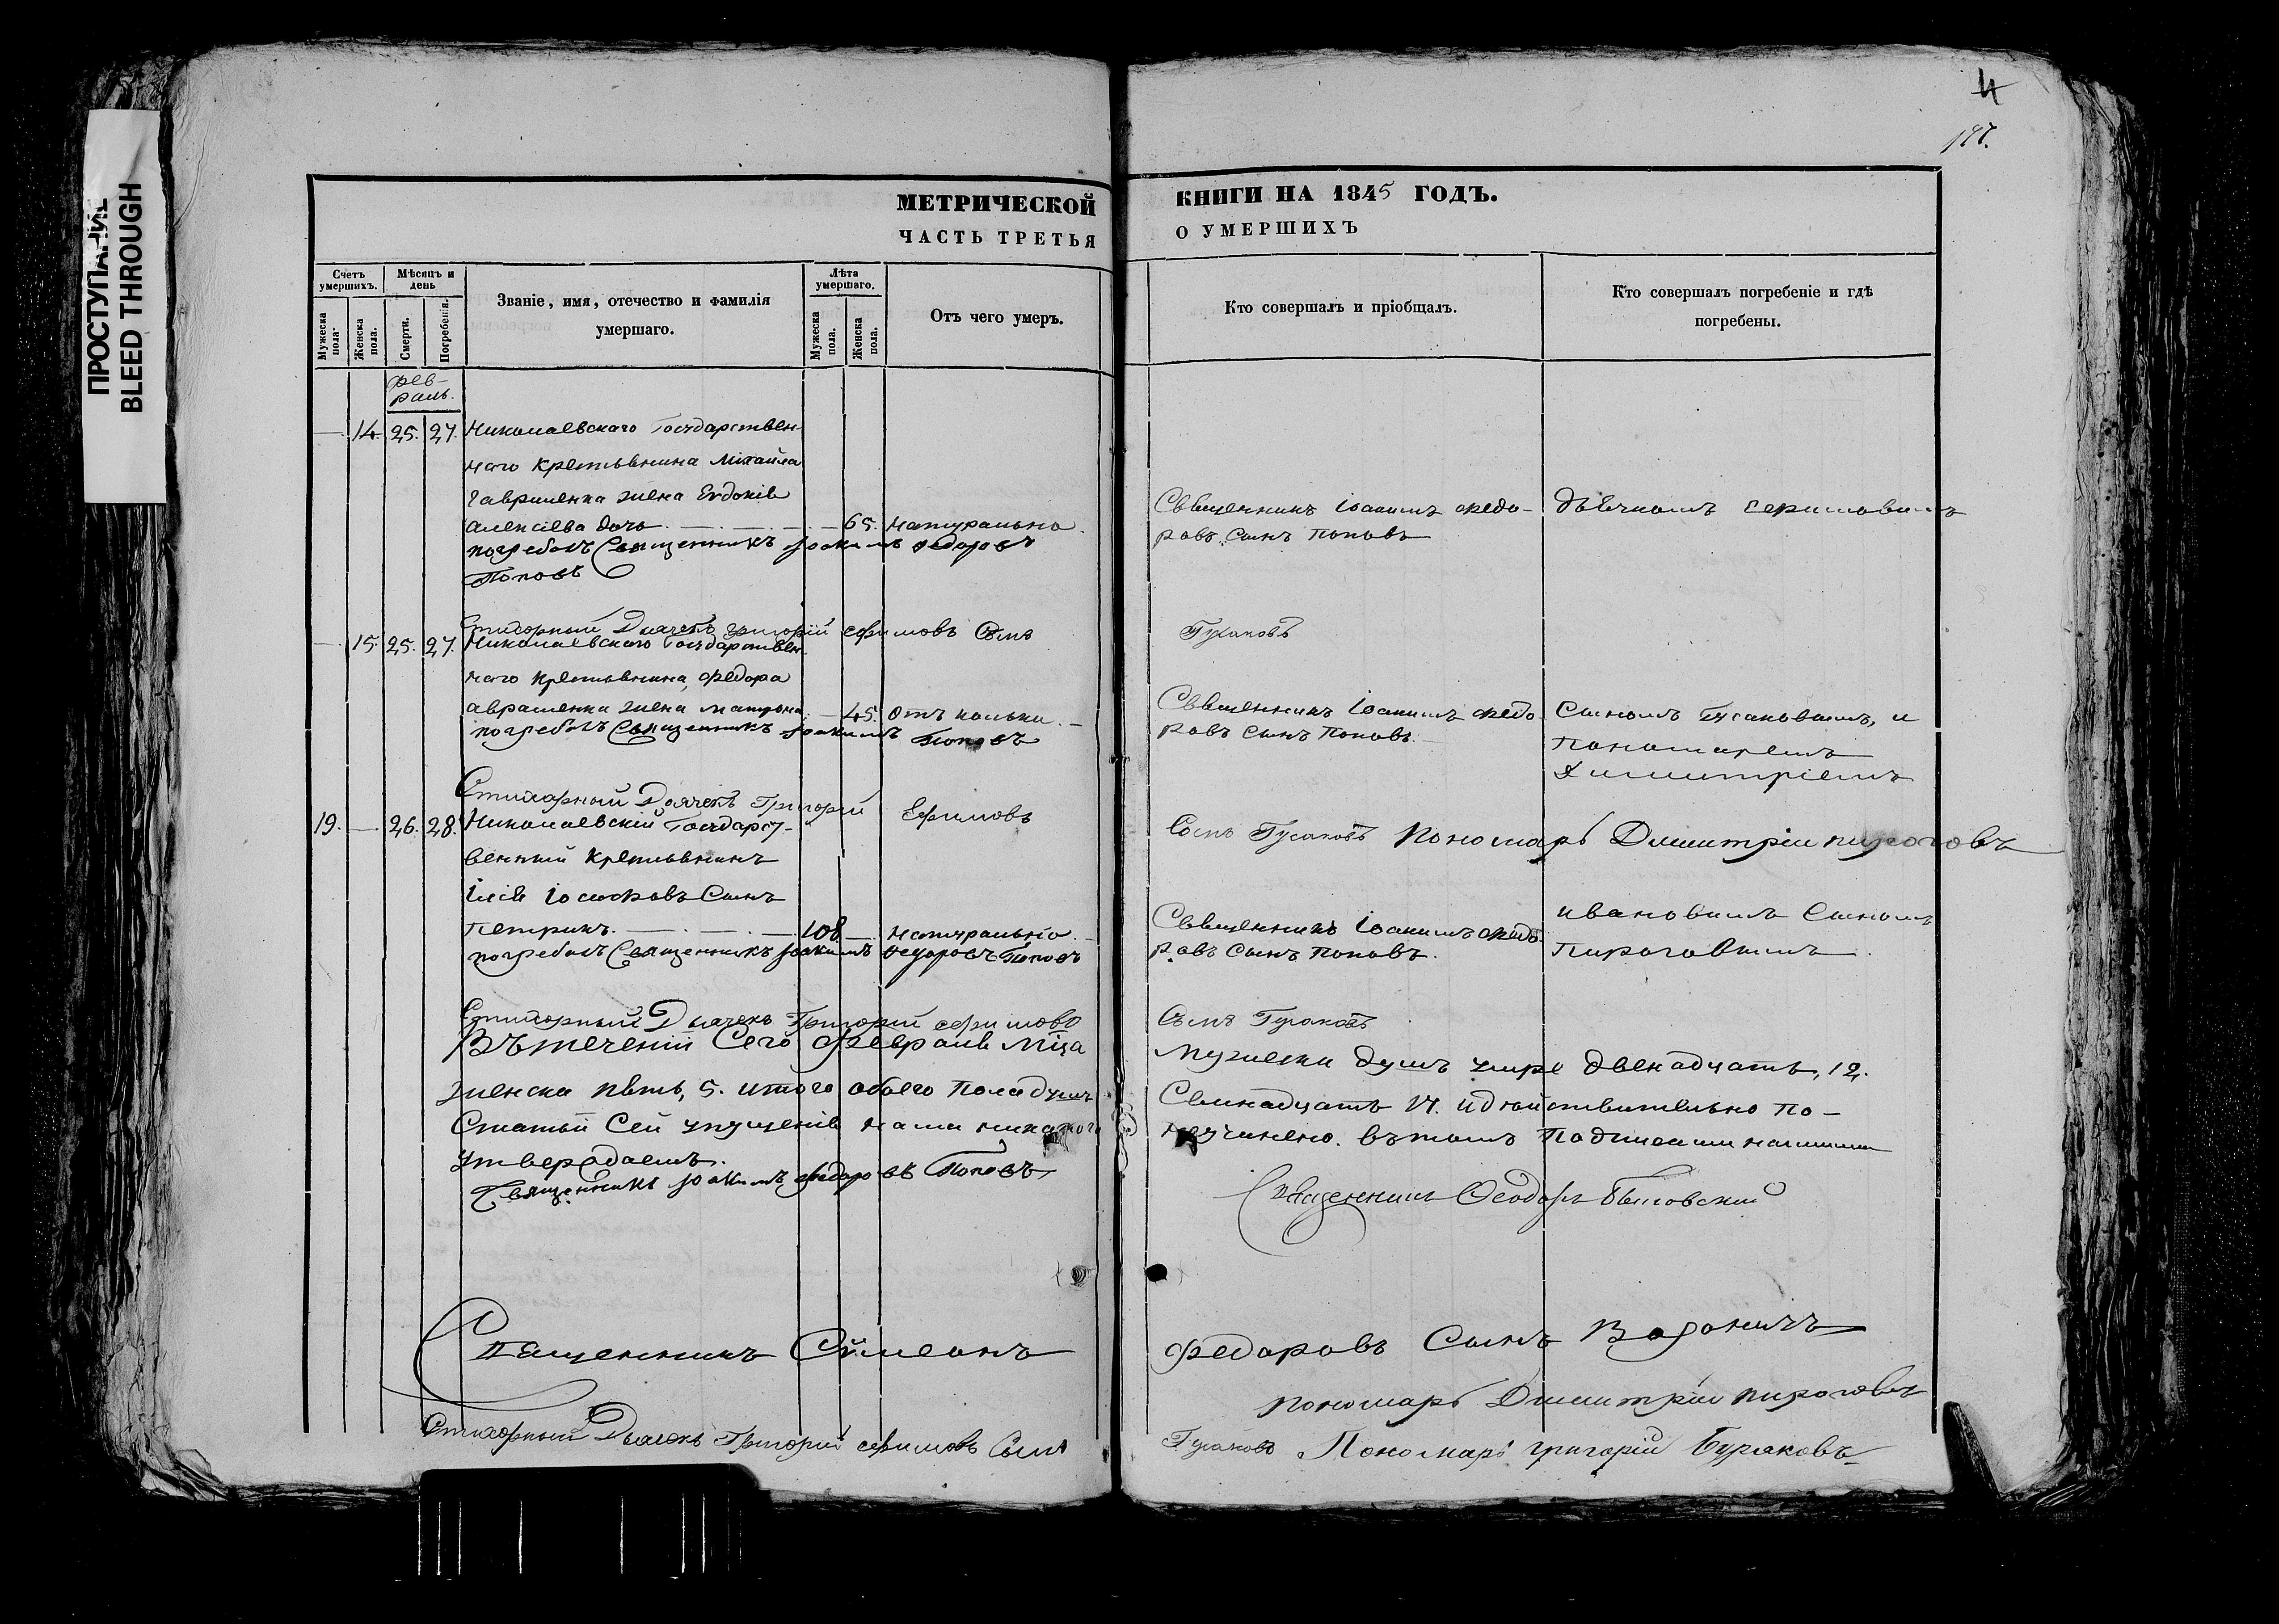 ПРОСТУПАНИЕ
BLEED THROUGH
4
197.
МЕТРИЧЕСКОЙ
ЧАСТЬ ТРЕТЬЯ
КНИГИ НА 1845 ГОДЪ.
О УМЕРШИХЪ
Счетъ умершихъ.
Мѣсяцъ и день
Званіе, имя, отечество и фамилія
умершаго.
Лѣта умершаго.
Отъ чего умеръ.
Кто совершалъ и пріобщалъ.
Кто совершалъ погребеніе и гдѣ
погребены.
Мужеска пола.
Женска пола.
Смерти.
Погребенія.
Мужеска пола.
Женска пола.
фев-
раль.
14. 25. 27. Николаевскаго Государствен-
наго крестьянина Михайла
Гавриленка жена Евдокія
Алексіева дочь 65. натурально
погребалъ Священникъ Іоакимъ Федоровъ
Поповъ
Священникъ Іоакимъ Федо-
ровъ Сынъ Поповъ
дьячкомъ
Стихорный Дьячекъ Григорій Ефимовъ Сынъ
Гусаковъ
15. 25. 27. Николаевскаго Государствен-
наго крестьянина, Федора
Авраменка жена Матрона 45. отъ кольки
погребалъ Священникъ Іоакимъ Поповъ
Священникъ Іоакимъ Федо-
ровъ сынъ Поповъ.
Сыномъ Гусаковымъ, и
Пономаремъ
Димитріемъ
Стихарный Дьячекъ Григорій Ефимовъ
Сынъ Гусаковъ Пономарь Димитрій Пироговъ
19. 26. 28. Николаевскій Государст-
венный крестьянинъ
Ілія Іосифовъ Сынъ
Петрикъ. 108 натурально
погребалъ Священникъ Іоакимъ Федоровъ Поповъ
Священникъ Іоакимъ Федо-
ровъ сынъ Поповъ.
Ивановымъ Сыномъ
Пироговымъ
Стихорный Дьячекъ Григорій Ефимовъ
Сынъ Гусаковъ
Въ теченіи Сего Февраля М-ца
мужеска душъ умре двенадцать, 12.
женска пять, 5. итого обоего пола душъ
Семнадцать 17. и действительно по-
Статьи Сей упущенія нами никакого
неучинено. въ томъ Подписами нашими
утверждаемъ.
Священникъ Іоакимъ Федоровъ Поповъ
Священникъ Ѳеодоръ
Священникъ Сѵмеонъ
Федоровъ Сынъ
Пономарь Димитрій Пироговъ
Стихорный Дьячекъ Григорій Ефимовъ Сынъ
Гусаковъ Пономарь Григорій Бураковъ